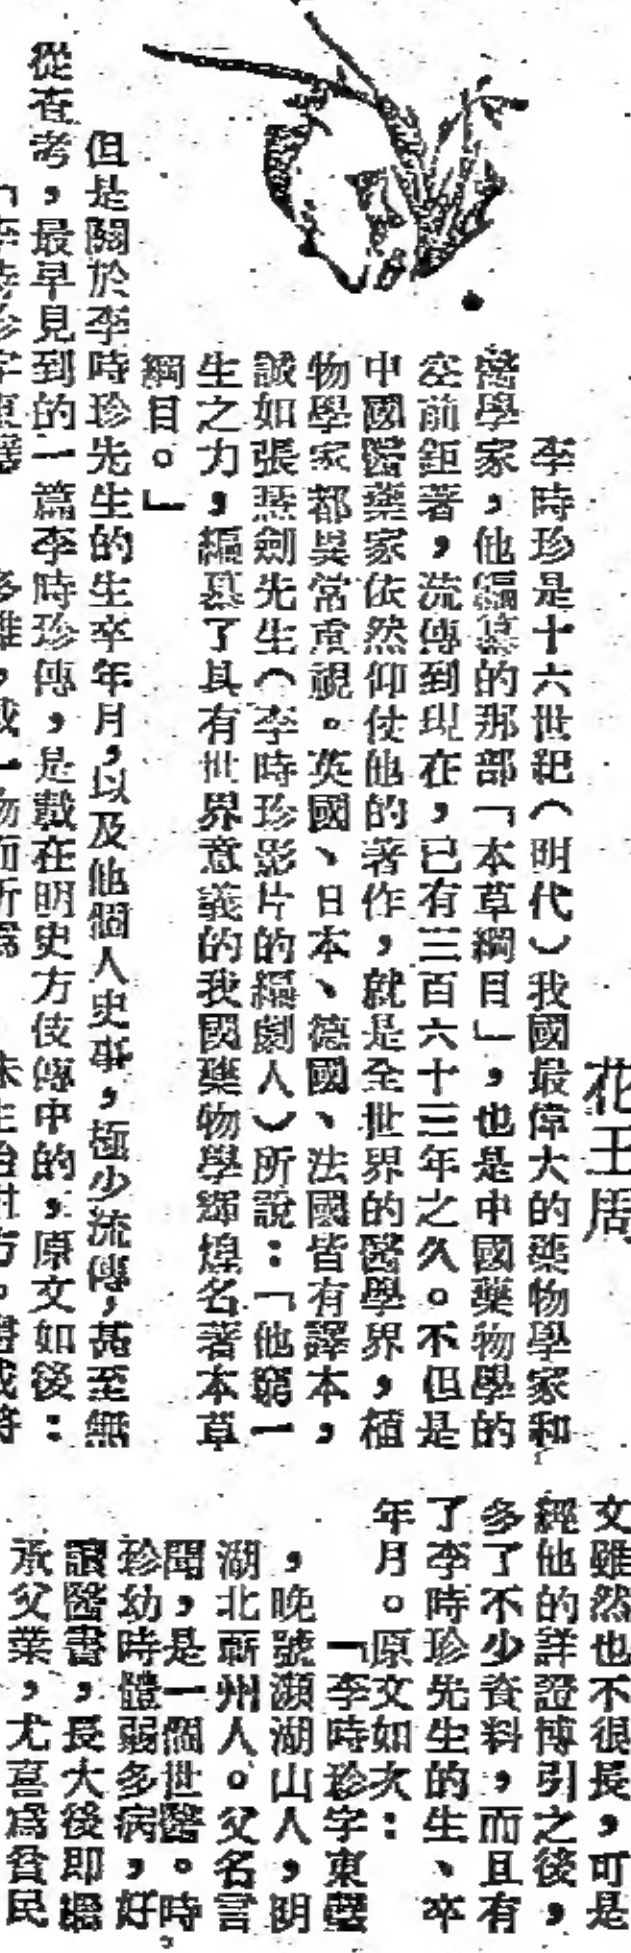 花王周
李時珍是十六世紀（明代）我國最偉大的藥物學家和
醫學家，他編纂的那部「本草綱目」，也是中國藥物學的
空前鉅著，流傳到現在，已有三百六十三年之久。不但是
中國醫藥家依然仰仗他的著作，就是全世界的醫學界，植
物學家都異常重視。英國、日本、德國、法國皆有譯本，
誠如張慧劍先生（李時珍影片的編劇人）所說：「他窮一
生之力，編纂了具有世界意義的我國藥物學輝煌名著本草
綱目。」
但是關於李時珍先生的生卒年月，以及他個人史事，極少流傳，甚至無
從查考，最早見到的一篇李時珍傳，是載在明史方伎傳中的，原文如後：
文雖然也不很長，可是
經他的詳證博引之後，
多了不少資料，而且有
了李時珍先生的生、卒
年月。原文如次：
「李時珍字東璧
，晚號瀕湖山人，明
湖北蘄州人。父名言
聞，是一個世醫。時
珍幼時體弱多病，好
讀醫書，長大後即繼
承父業，尤喜為貧民